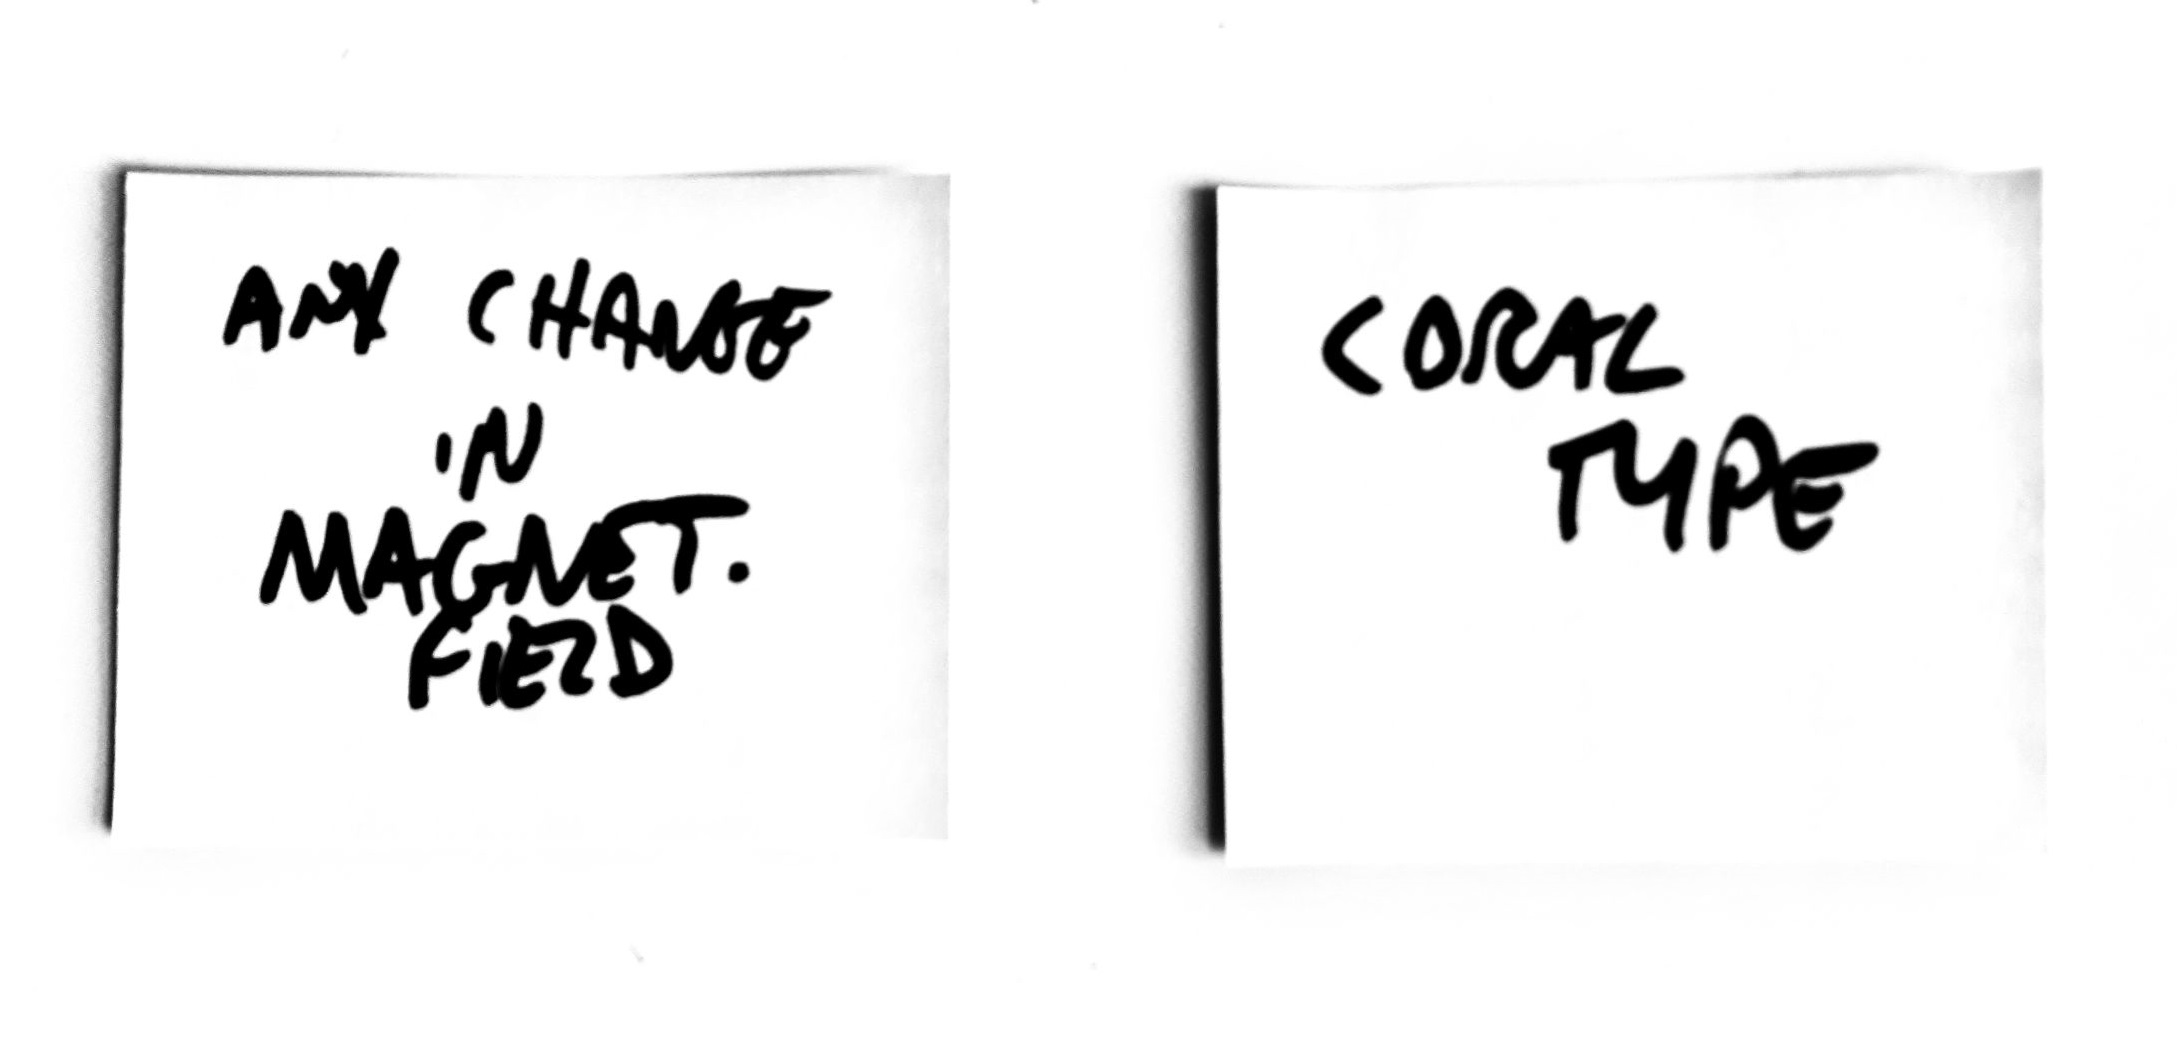 ANY CHANGE
IN
MAGNET.
FIELD
CORAL
TYPE